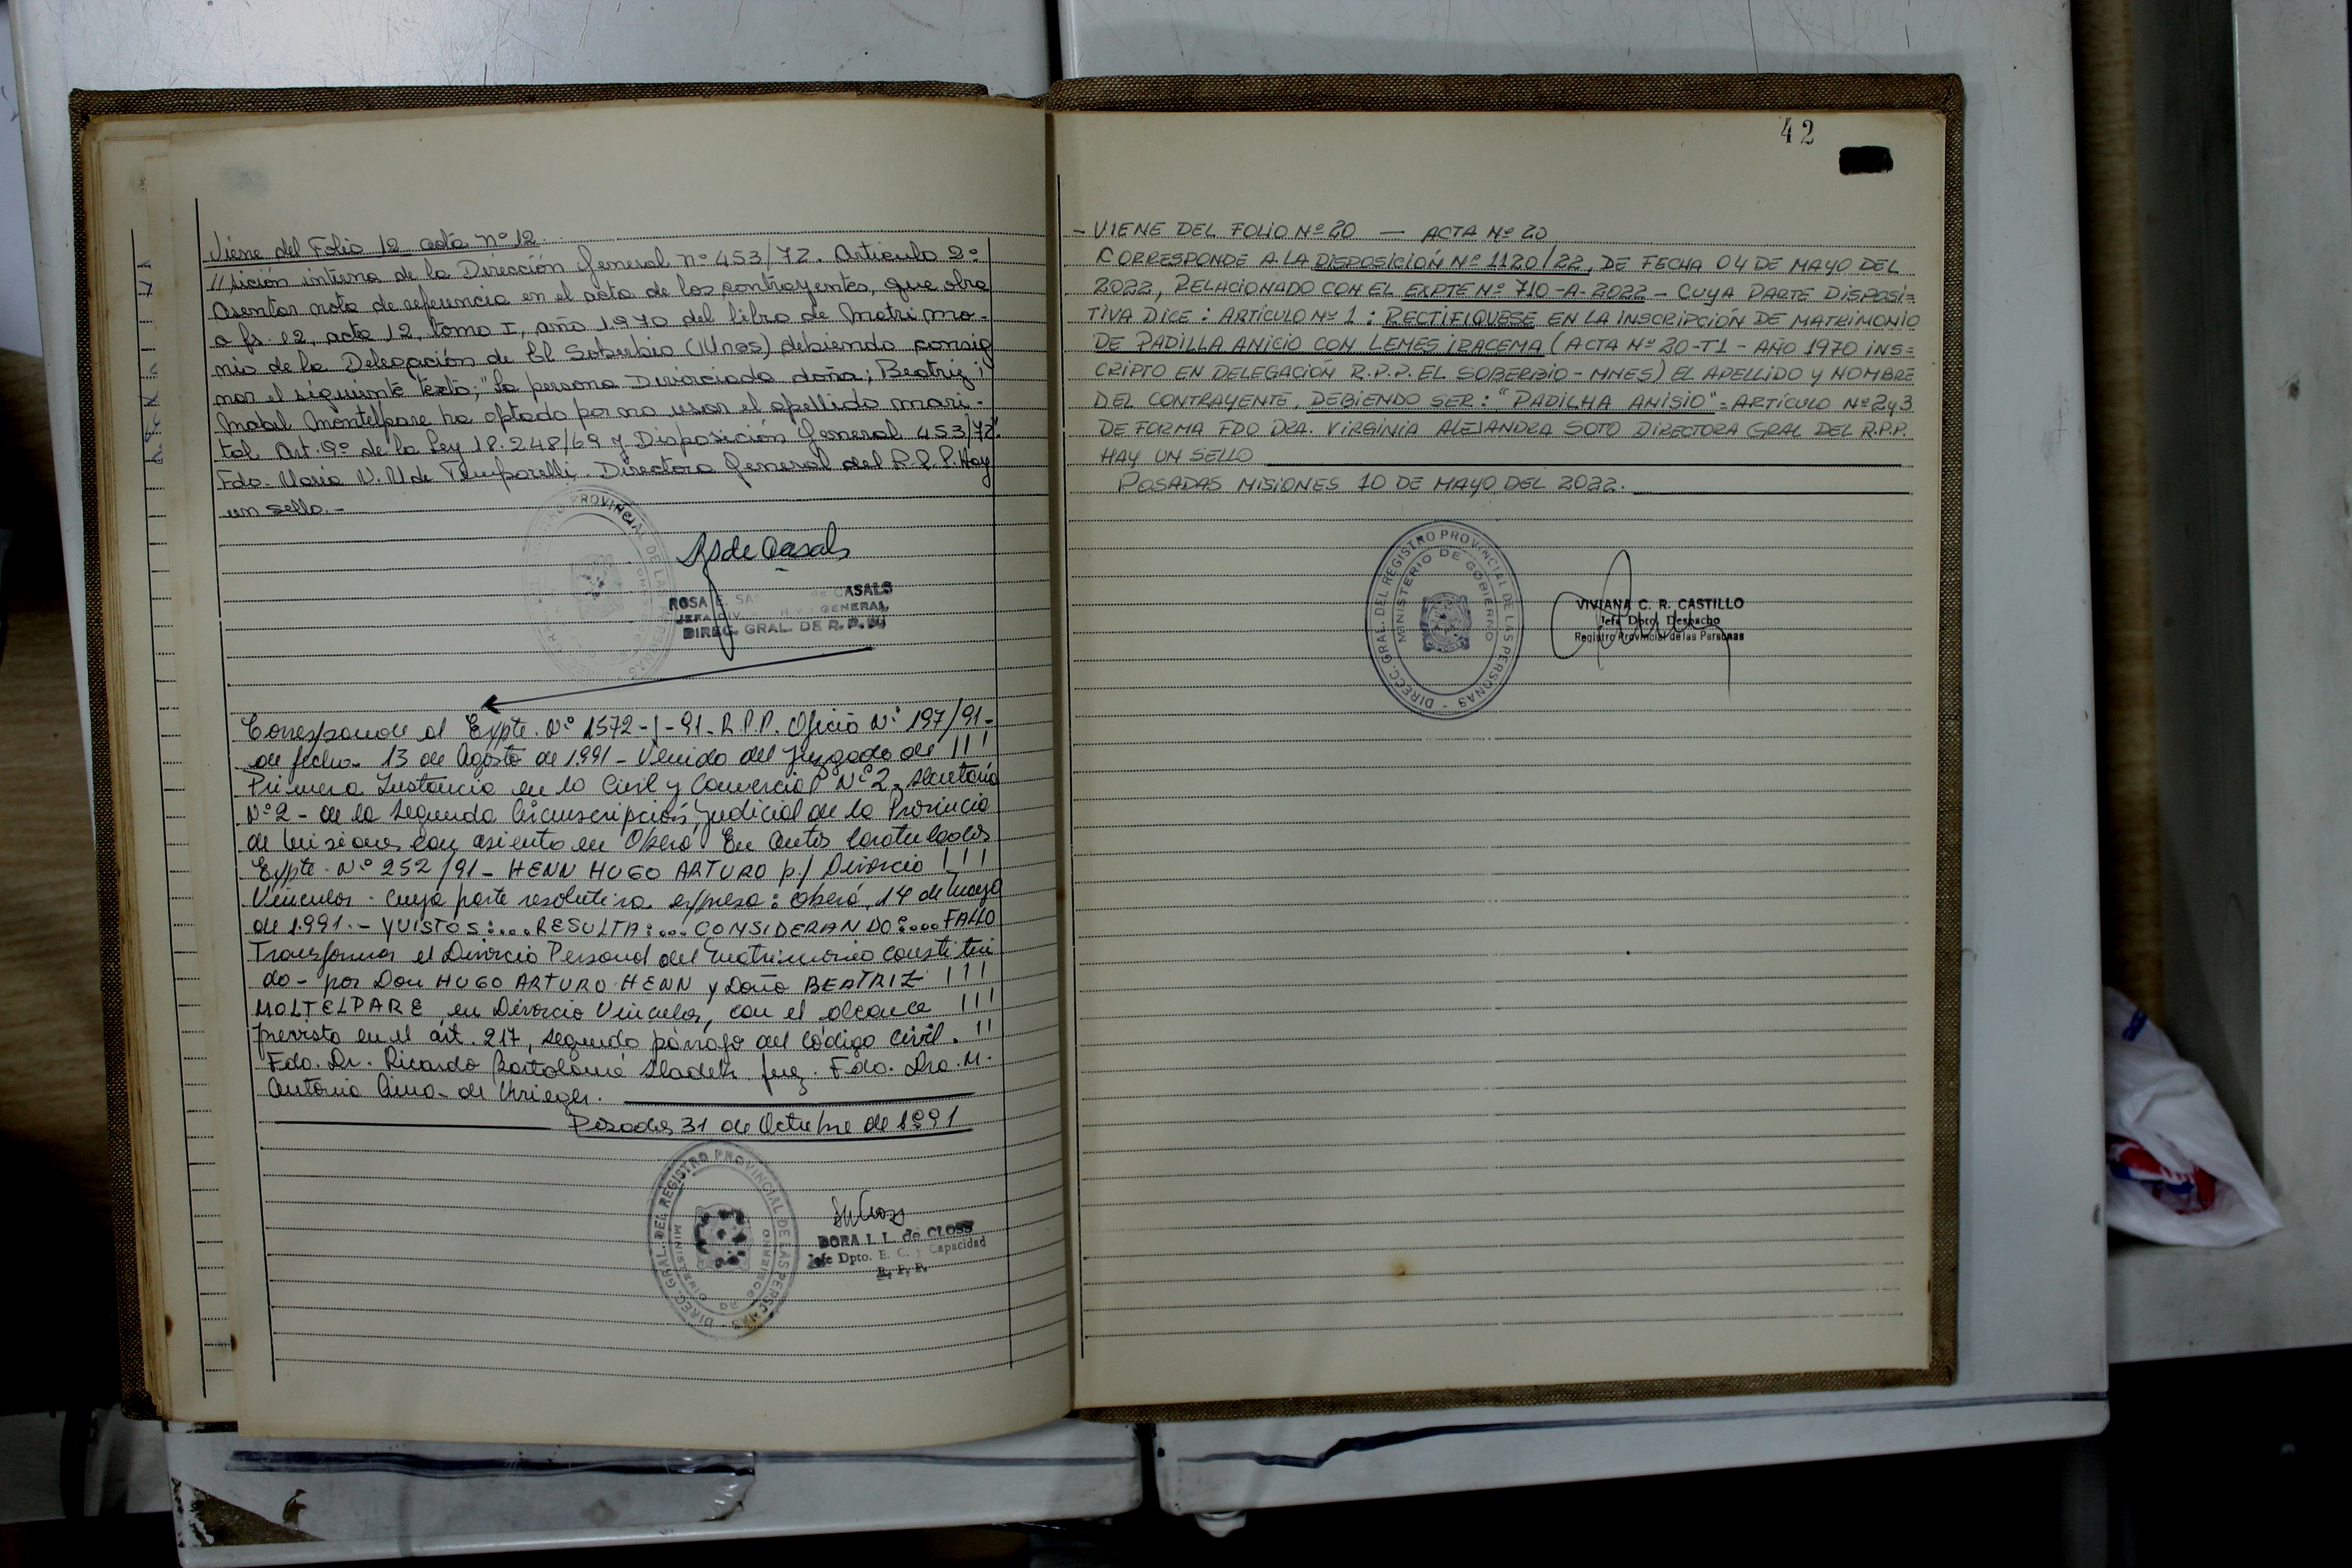 Viene del Folio 12 acta nº 12
//sición interna de la Dirección General nº 453/72. Articulo 2º
Asentar nota de referencia en el acta de los contrayentes, que obra
a fs. 12, acta 12, tomo I, año 1970 del libro de Matrimo-
nio de la Delegación de El Soberbio (Mnes) debiendo consig
nar el siguiente texto; "La persona Divorciada doña; Beatriz
Mabel Montelpare ha optado por no usar el apellido mari-
tal. Art. 9º de la Ley 18.248/69 y Disposición General 453/72".
Fdo. Maria V. M de Temporelli Directora General del R.P.P. Hay
un sello.-
ROSA E. de CASALS
JEFA DIV. GENERAL
DIREC. GRAL. DE R. P. P.
Corresponde al Expte. Nº 1572-J-91-R.P.P. Oficio Nº 197/91-
de fecha 13 de Agosto de 1991 - Venido del Juzgado de !!!
Primera Instancia en lo Civil y Comercial Nº 2. Secretaria
Nº 2 - de la Segunda Circunscripción Judicial de la Provincia
de Misiones con asiento en Oberá En Autos Caratulados
Expte. Nº 252/91 - HENN HUGO ARTURO p./ Divorcio !!!
Vincular - cuya parte resolutiva expresa: Oberá, 14 de Mayo
de 1.991.- Y VISTOS:....RESULTA:... CONSIDERANDO:....FALLO
Transformar el Divorcio Personal del matrimonio constitui
do - por Don HUGO ARTURO HENN y Doña BEATRIZ !!!
MOLTELPARE en Divorcio Vincular, con el alcance !!!
previsto en el art. 217, segundo párrafo del código civil. !!
Fdo. Dr. Ricardo Bartolomé Juez. Fdo. Dra. M.
Antonia de Krieger.
Posadas 31 de Octubre de 1991
DIREC. GRAL. DEL REGISTRO PROVINCIAL DE LAS PERSONAS
MINISTERIO DE GOBIERNO
DORA I. L. de CLOSS
Jefe Dpto. E. C. y Capacidad
R. P. P.
42
- VIENE DEL FOLIO Nº 20 — ACTA Nº 20
CORRESPONDE A LA DISPOSICIÓN Nº 1120/22, DE FECHA 04 DE MAYO DEL
2022, RELACIONADO CON EL EXPTE Nº 710-A-2022 - CUYA PARTE DISPOSI=
TIVA DICE: ARTÍCULO Nº 1: RECTIFIQUESE EN LA INSCRIPCIÓN DE MATRIMONIO
DE PADILLA ANICIO CON LEMES IRACEMA (ACTA Nº 20-T1-AÑO 1970 INS=
CRIPTO EN DELEGACIÓN R.P.P. EL SOBERBIO - MNES) EL APELLIDO Y NOMBRE
DEL CONTRAYENTE, DEBIENDO SER: "PADILHA ANISIO" - ARTÍCULO Nº 2y3
DE FORMA FDO DRA. VIRGINIA ALEJANDRA SOTO DIRECTORA GRAL DEL R.P.P.
HAY UN SELLO
POSADAS MISIONES 10 DE MAYO DEL 2022.
DIREC. GRAL. DEL REGISTRO PROVINCIAL DE LAS PERSONAS
MINISTERIO DE GOBIERNO
VIVIANA C. R. CASTILLO
Jefa Dpto. Despacho
Registro Provincial de las Personas